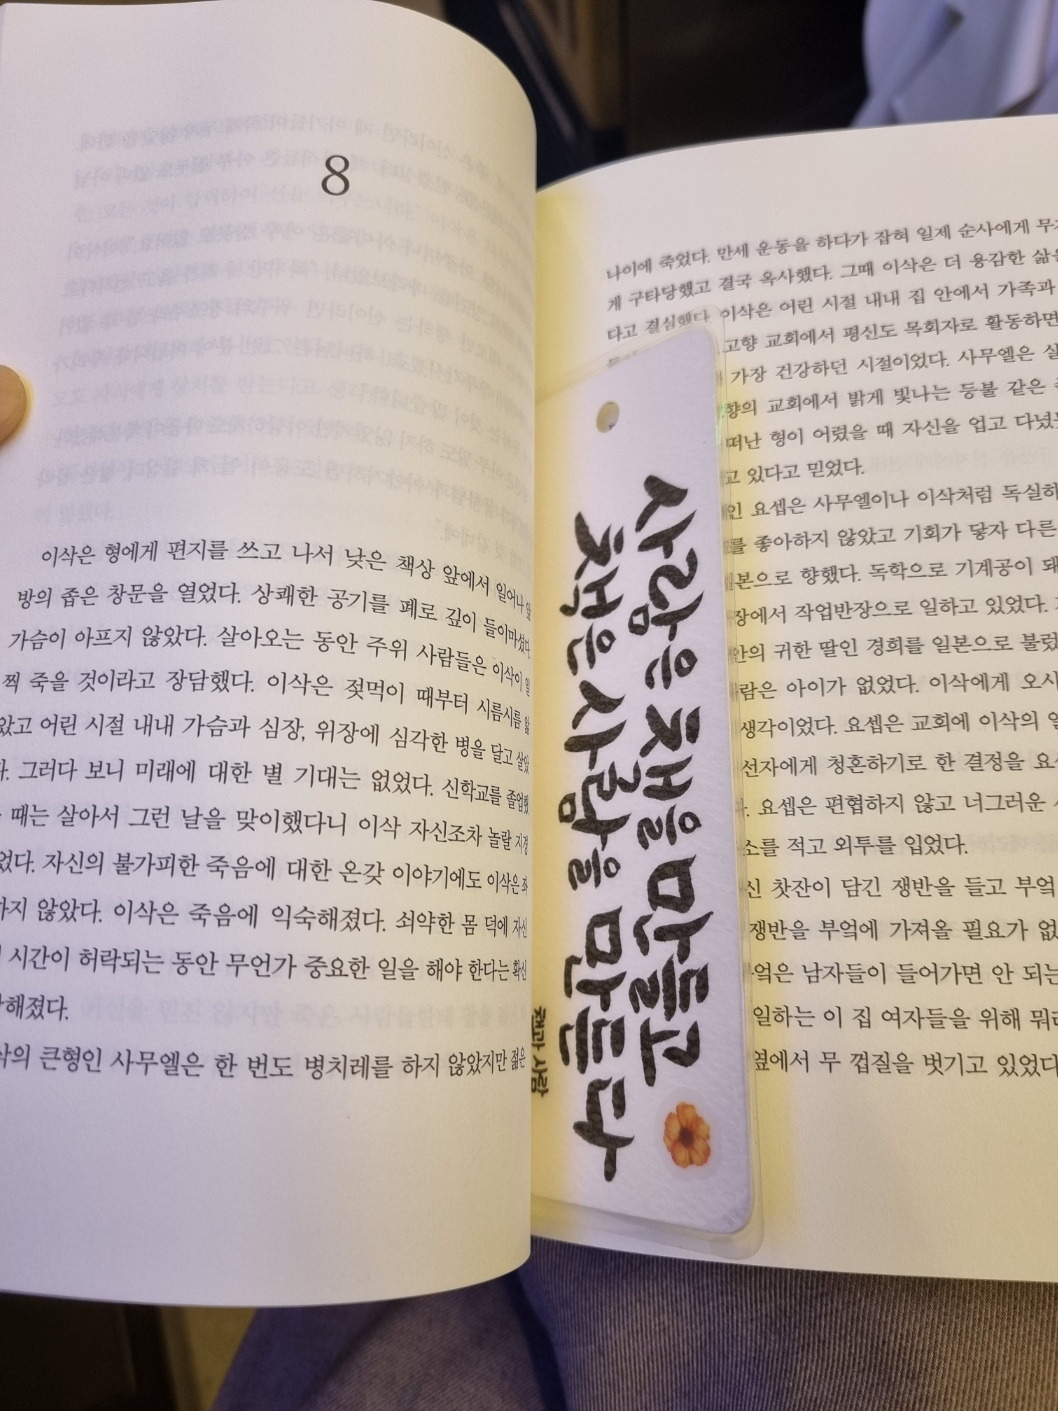 8
이삭은 형에게 편지를 쓰고 나서 낮은 책상 앞에서 일어나
방의 좁은 창문을 열었다. 상쾌한 공기를 폐로 깊이 들이마셨다.
가슴이 아프지 않았다. 살아오는 동안 주위 사람들은 이삭이 일
찍 죽을 것이라고 장담했다. 이삭은 젖먹이 때부터 시름시름 앓
았고 어린 시절 내내 가슴과 심장, 위장에 심각한 병을 달고 살았
다. 그러다 보니 미래에 대한 별 기대는 없었다. 신학교를 졸업했
때는 살아서 그런 날을 맞이했다니 이삭 자신조차 놀랄 지경
었다. 자신의 불가피한 죽음에 대한 온갖 이야기에도 이삭은 좌
하지 않았다. 이삭은 죽음에 익숙해졌다. 쇠약한 몸 덕에 자신
시간이 허락되는 동안 무언가 중요한 일을 해야 한다는 확신
해졌다.
삭의 큰형인 사무엘은 한 번도 병치레를 하지 않았지만 젊은
나이에 죽었다. 만세 운동을 하다가 잡혀 일제 순사에게 무자
게 구타당했고 결국 옥사했다. 그때 이삭은 더 용감한 삶을
다고 결심했다. 이삭은 어린 시절 내내 집 안에서 가족과
고향 교회에서 평신도 목회자로 활동하면
가장 건강하던 시절이었다. 사무엘은 살
향의 교회에서 밝게 빛나는 등불 같은
떠난 형이 어렸을 때 자신을 업고 다녔
고 있다고 믿었다.
인 요셉은 사무엘이나 이삭처럼 독실하
를 좋아하지 않았고 기회가 닿자 다른
일본으로 향했다. 독학으로 기계공이 돼
장에서 작업반장으로 일하고 있었다.
안의 귀한 딸인 경희를 일본으로 불렀
람은 아이가 없었다. 이삭에게 오사
생각이었다. 요셉은 교회에 이삭의 일
선자에게 청혼하기로 한 결정을 요셉
요셉은 편협하지 않고 너그러운
소를 적고 외투를 입었다.
신 찻잔이 담긴 쟁반을 들고 부엌
쟁반을 부엌에 가져올 필요가 없
부엌은 남자들이 들어가면 안 되는
일하는 이 집 여자들을 위해 뭐라
옆에서 무 껍질을 벗기고 있었다
사람은 책을 만들고
책은 사람을 만든다
책과 사람